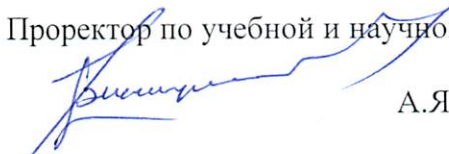 Проректор по учебной и научно
А.Я